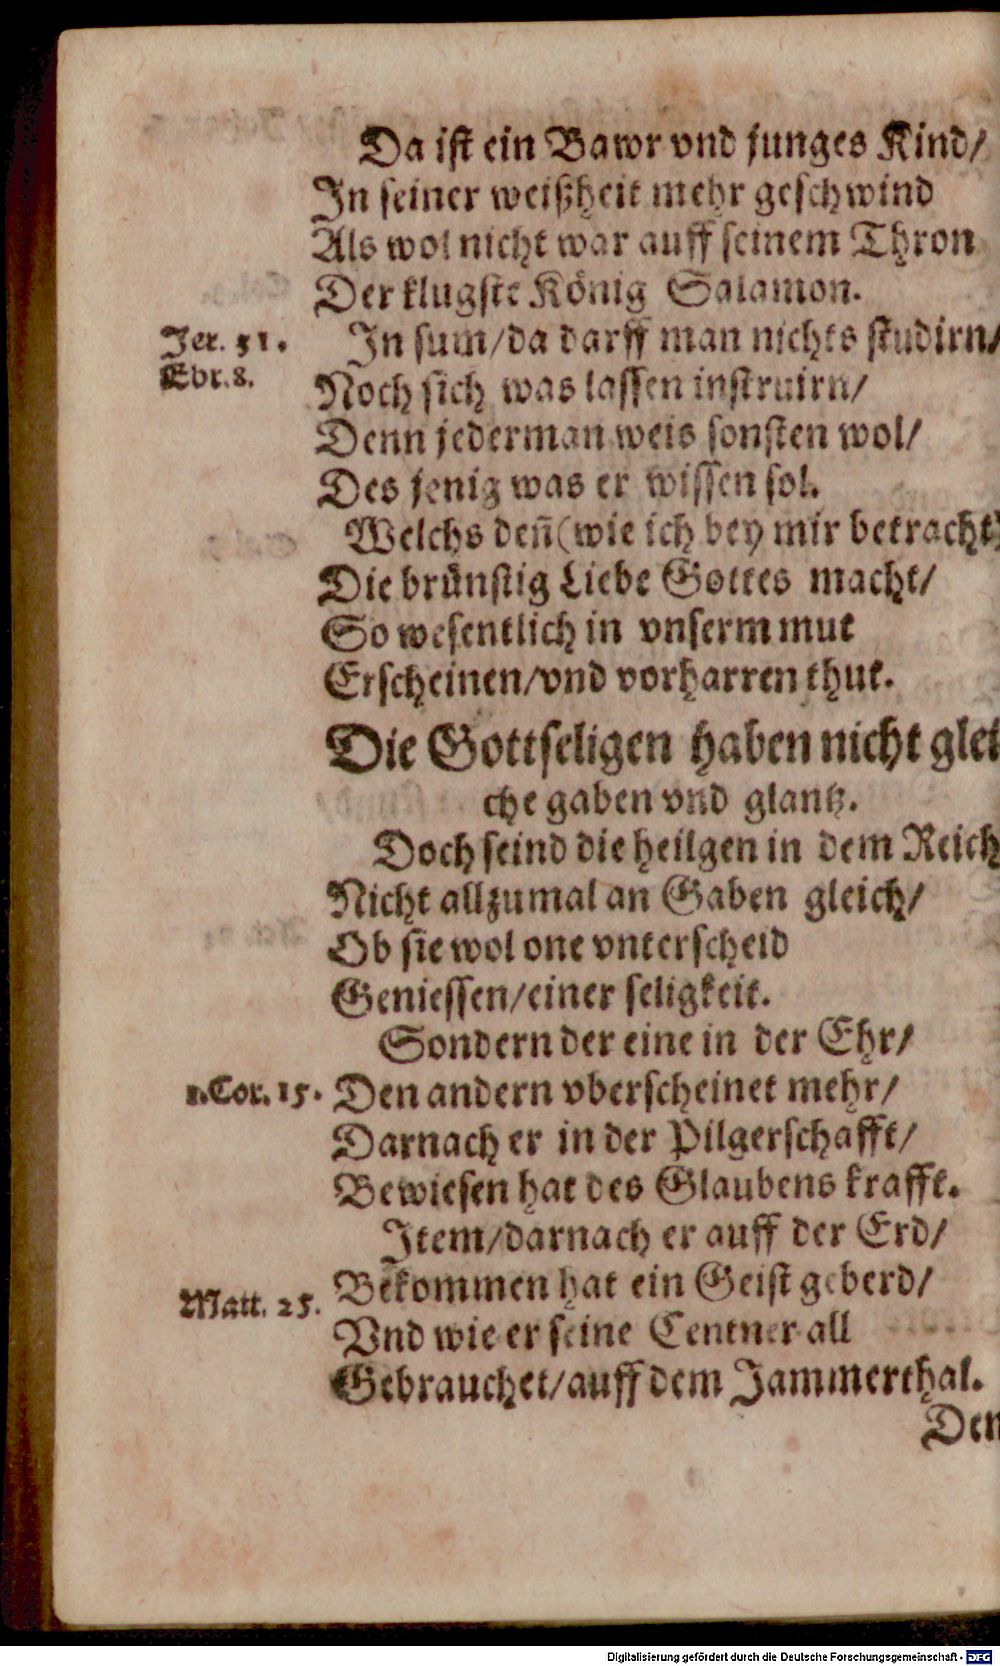 Da ist ein Bawr vnd junges Kind/
In seiner weißheit mehr geschwind
Als wol nicht war auff seinem Thron
Der klugste König Salamon.
Jer. 31.
Ebr. 8.
In sum/da darff man nichts studirn/
Noch sich was lassen instruirn/
Denn jederman weis sonsten wol/
Des jenig was er wissen sol.
Welchs deñ(wie ich bey mir betracht)
Die brünstig Liebe Gottes macht/
So wesentlich in vnserm mut
Erscheinen/vnd vorharren thut.
Die Gottseligen haben nicht glei
che gaben vnd glantz.
Doch seind die heilgen in dem Reich
Nicht allzumal an Gaben gleich/
Ob sie wol one vnterscheid
Geniessen/einer seligkeit.
Sondern der eine in der Ehr/
1.Cor. 15.
Den andern vberscheinet mehr/
Darnach er in der Pilgerschafft/
Bewiesen hat des Glaubens krafft.
Item/darnach er auff der Erd/
Bekommen hat ein Geist geberd/
Matt. 25.
Vnd wie er seine Centner all
Gebrauchet/auff dem Jammerthal.
Den
Digitalisierung gefördert durch die Deutsche Forschungsgemeinschaft - DFG